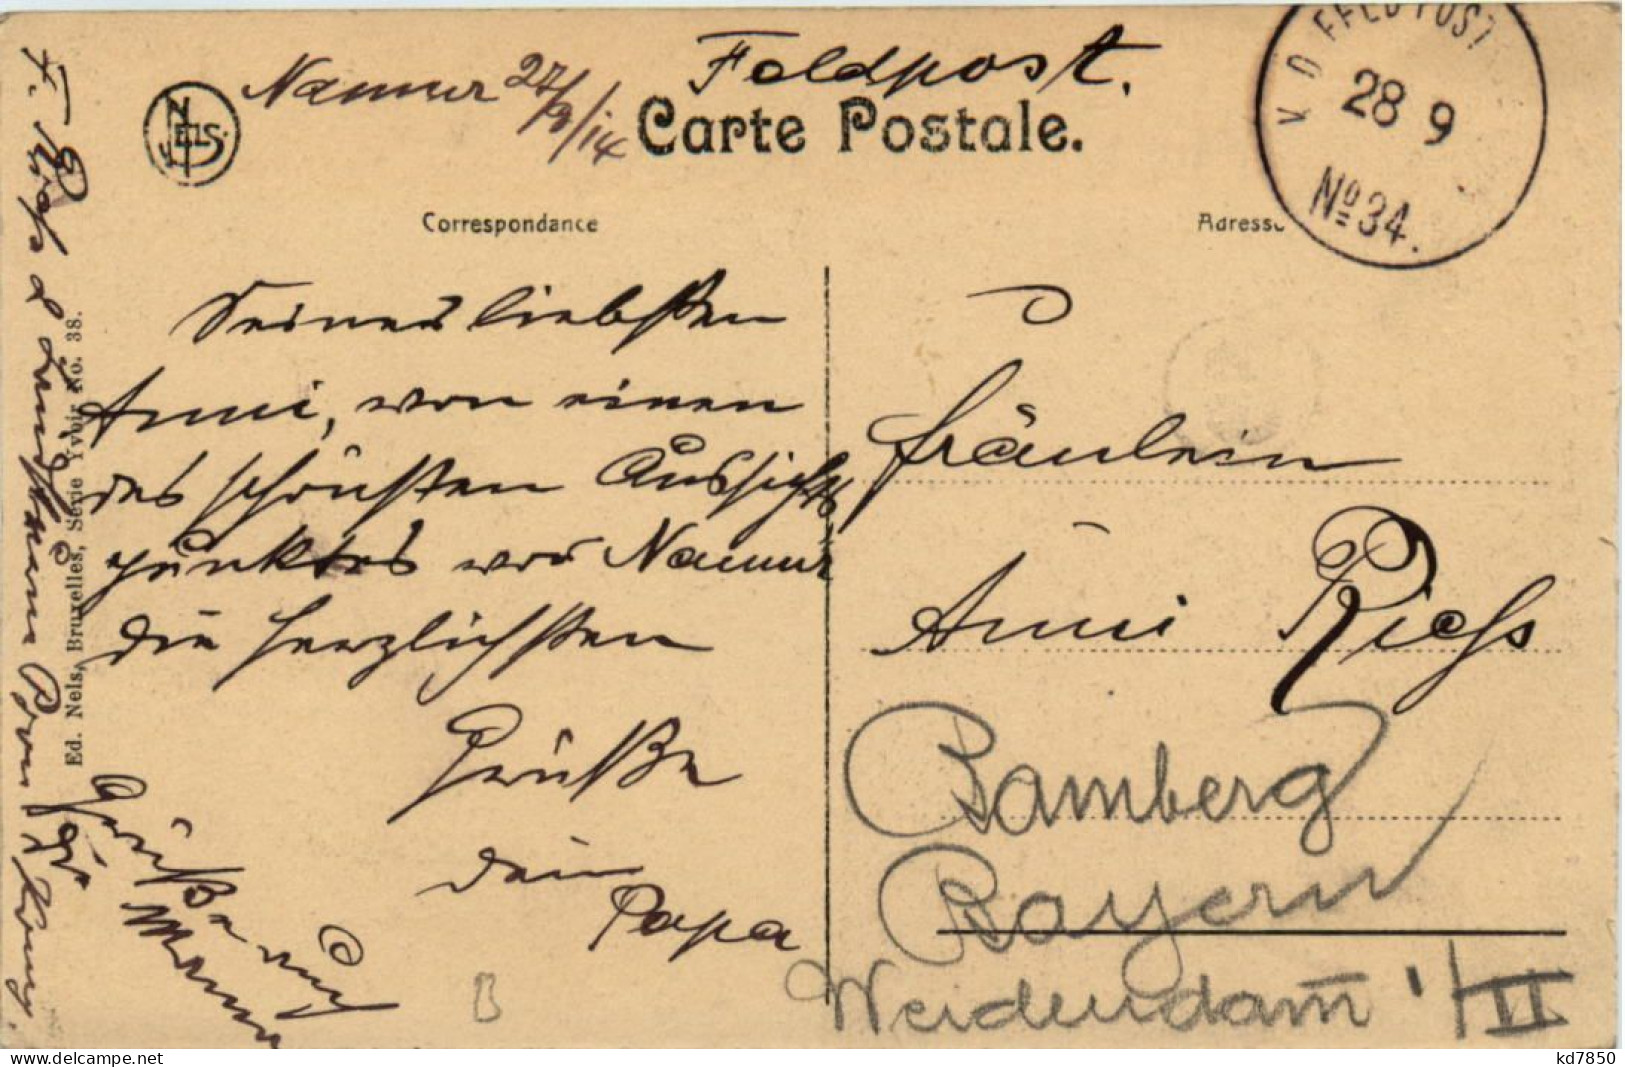 Namur 27/9/14
Feldpost.
NELS
Carte Postale.
K D FELDPOST
28 9
No 34.
Correspondance
Adresse
Seiner liebsten
Anni, von einem
des schönsten Aussichts
punktes vor Namur
die herzlichsten
Grüße
dein
Papa
Grüße auch
Mama
Fräulein
Anni Riess
Bamberg
Bayern
Weidendamm 1/II
B
Ed. Nels, Bruxelles, Serie Yvoir No. 38.
kd7850